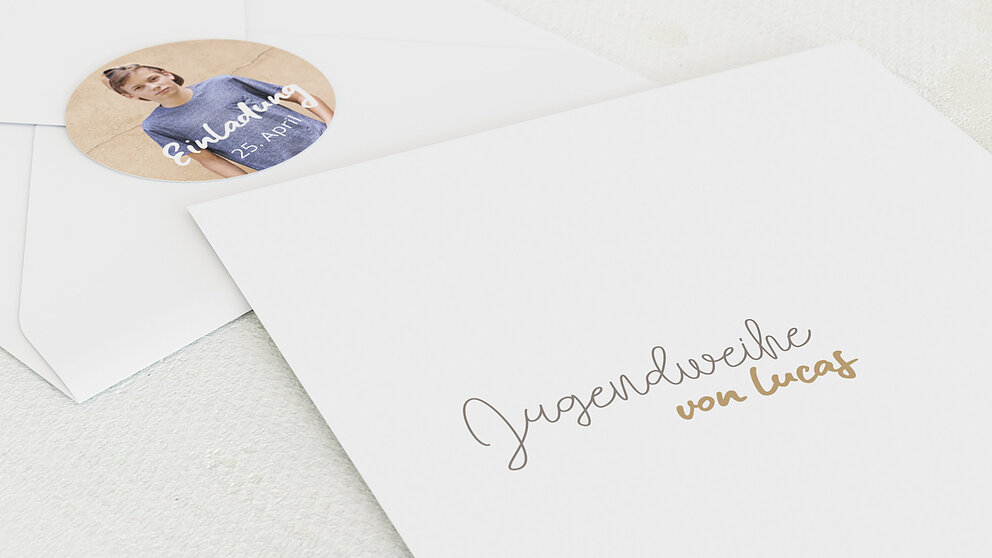 Einladung
25. April
Jugendweihe
von Lucas